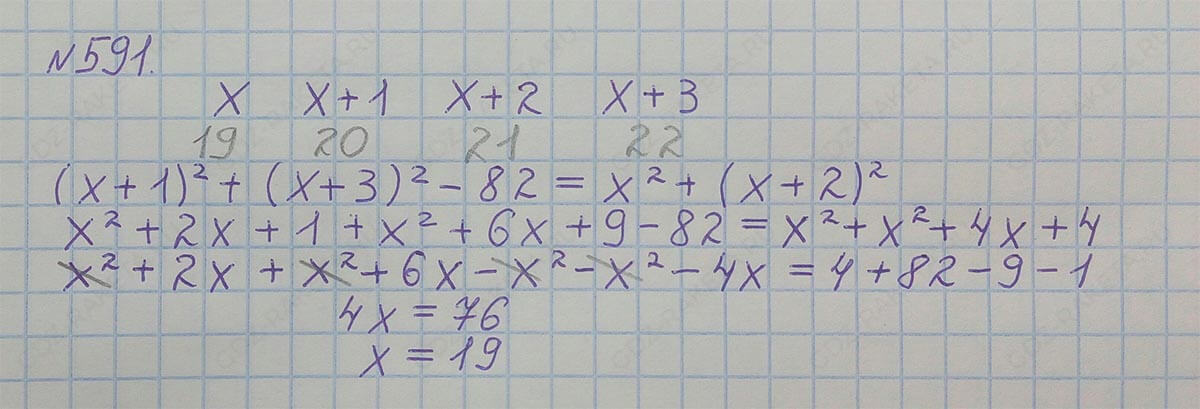 №591.
x x+1 x+2 x+3
19 20 21 22
(x+1)²+(x+3)²-82=x²+(x+2)²
x²+2x+1+x²+6x+9-82=x²+x²+4x+4
x²+2x+x²+6x-x²-x²-4x=4+82-9-1
4x=76
x=19